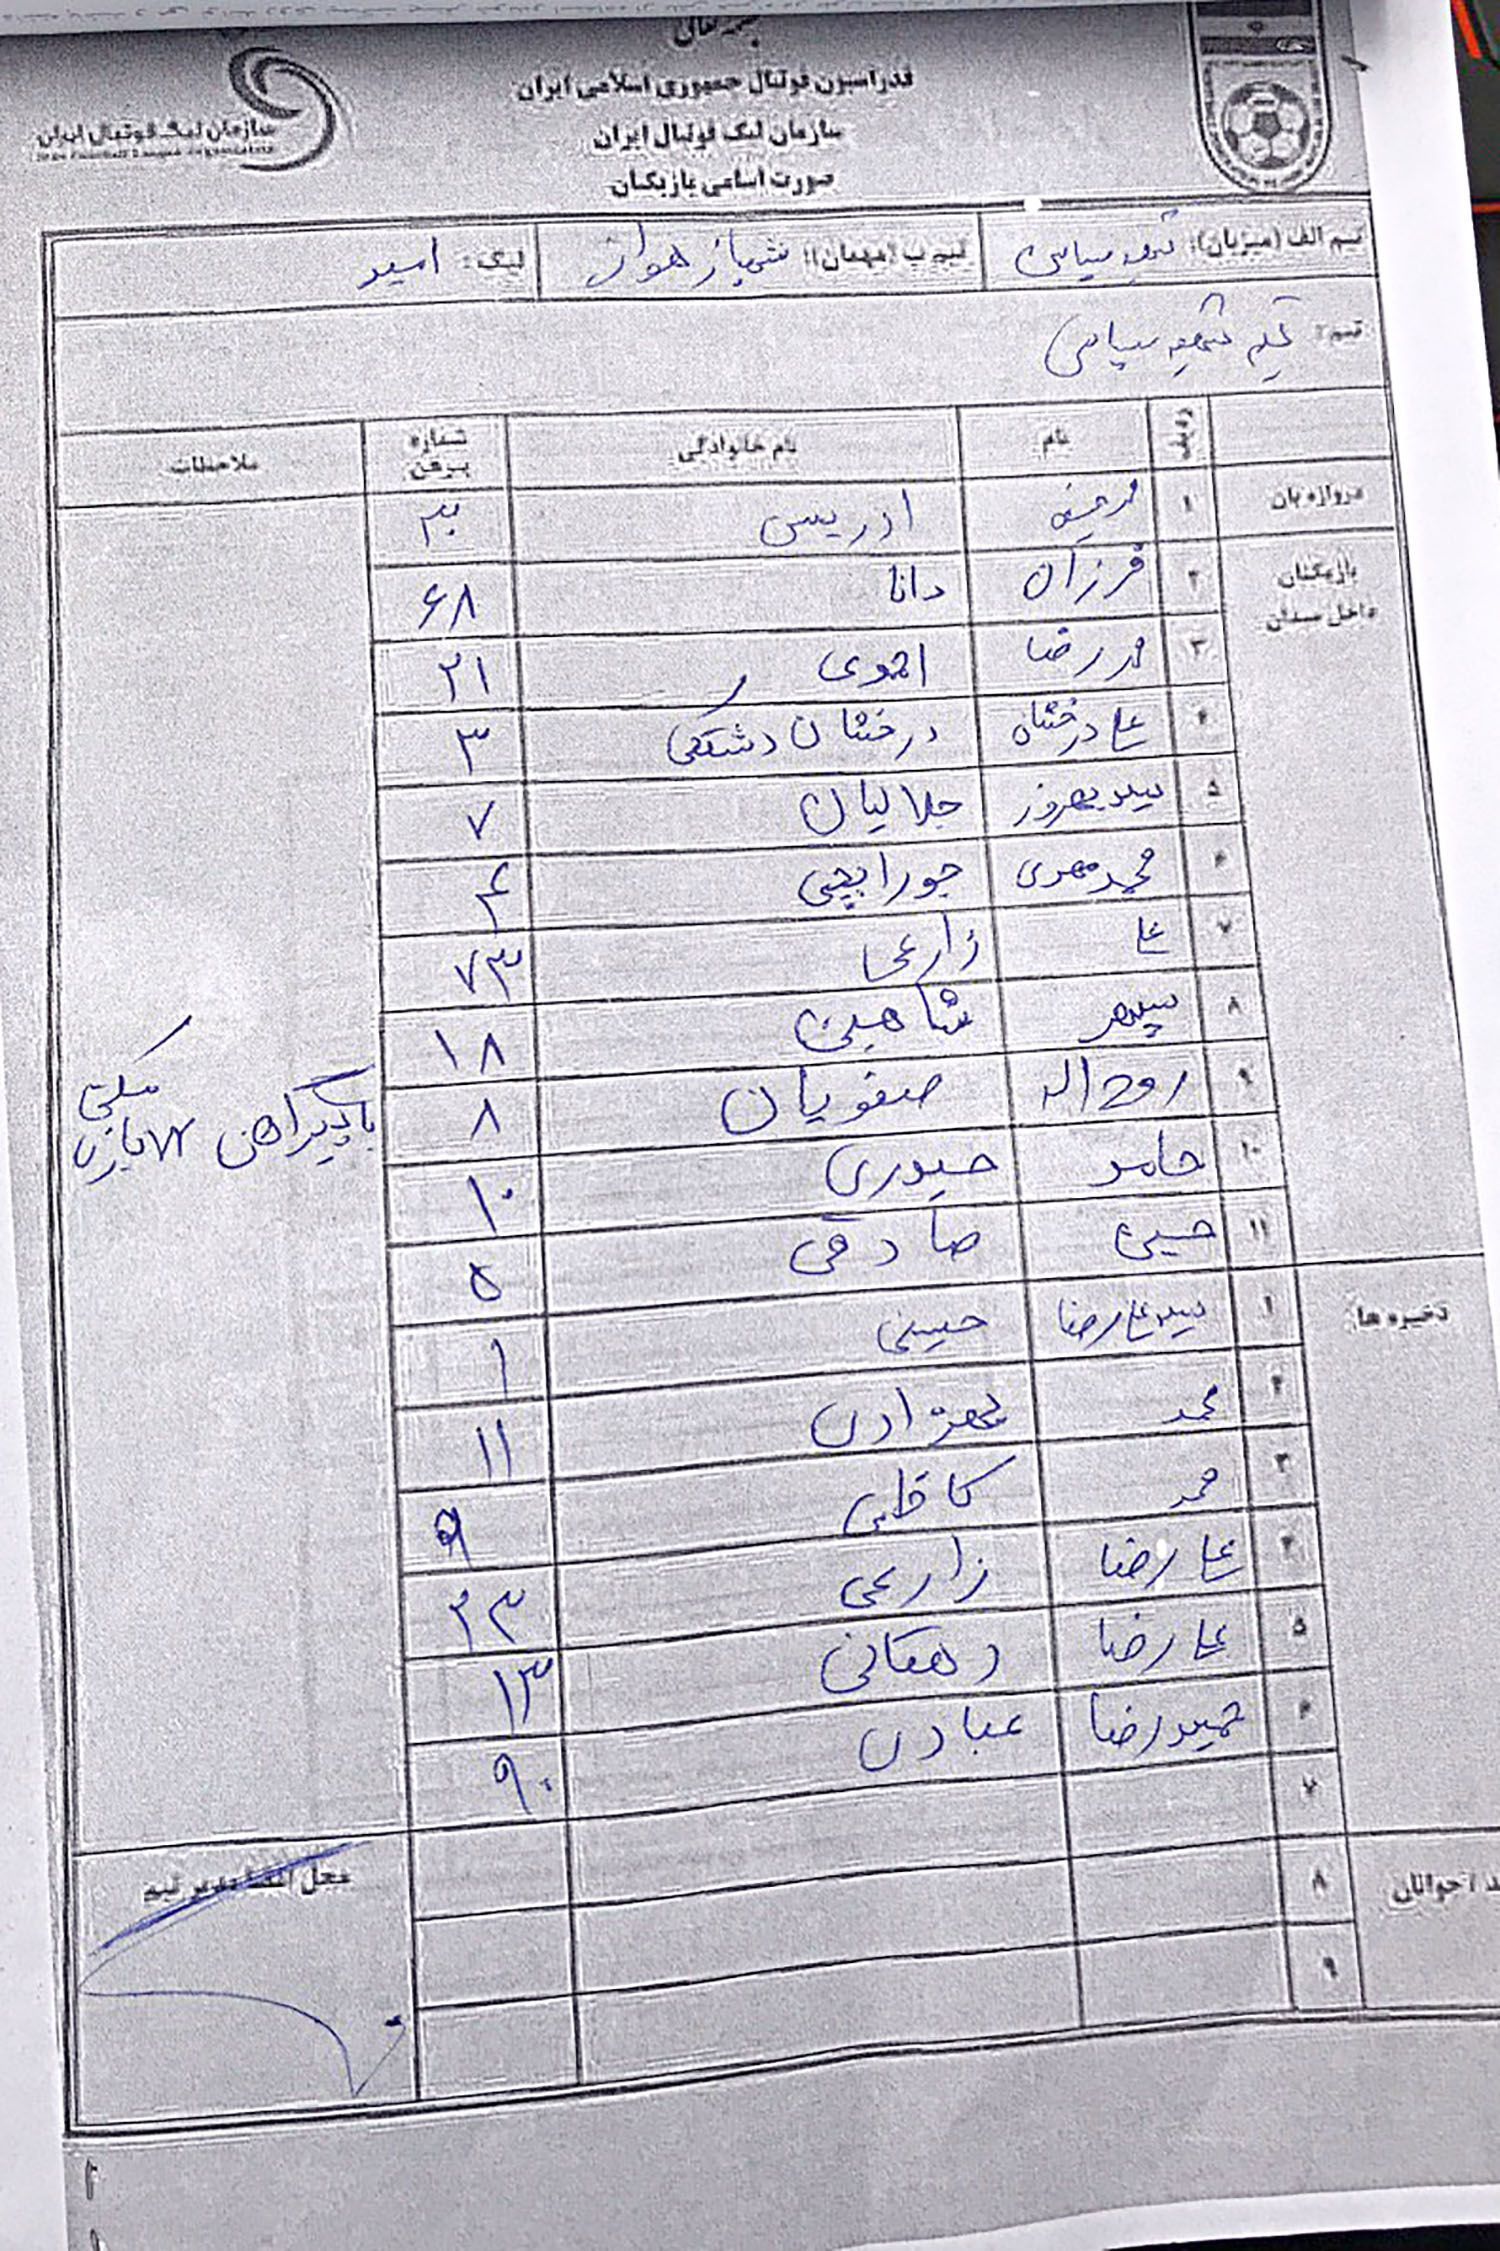 بسمه تعالی
فدراسیون فوتبال جمهوری اسلامی ایران
سازمان لیگ فوتبال ایران
صورت اسامی بازیکنان
سازمان لیگ فوتبال ایران
تیم الف (میزبان): شهید سپاسی تیم ب (مهمان): شهباز هوان لیگ: امید
تیم: تیم شهید سپاسی
ردیف نام نام خانوادگی شماره پیرهن ملاحظات
دروازه بان ۱ ادریسی
بازیکنان داخل میدان ۲ فرزان دانا ۶۸
۳ محمدرضا احمدی ۲۱
۴ علی درخشان درخشان دشتکی ۳
۵ سید بهروز جلالیان ۷
۶ محمد مهدی جورابچی ۴
۷ علی زارعی ۷۳
۸ سپهر شاهین ۱۸
۹ روح اله صفویان ۸
۱۰ حامد حیدری ۱۰
۱۱ حسین صادقی ۵
با پیراهن مشکی
ذخیره ها ۱ سید علیرضا حسینی ۱
۲ محمد بهزادی ۱۱
۳ محمد کاظمی ۹
۴ علیرضا زارعی ۲۳
۵ علیرضا دهقانی ۱۳
۶ حمیدرضا عبادی ۹۰
۷
۸
۹
جوانان
محل امضا مدیر تیم